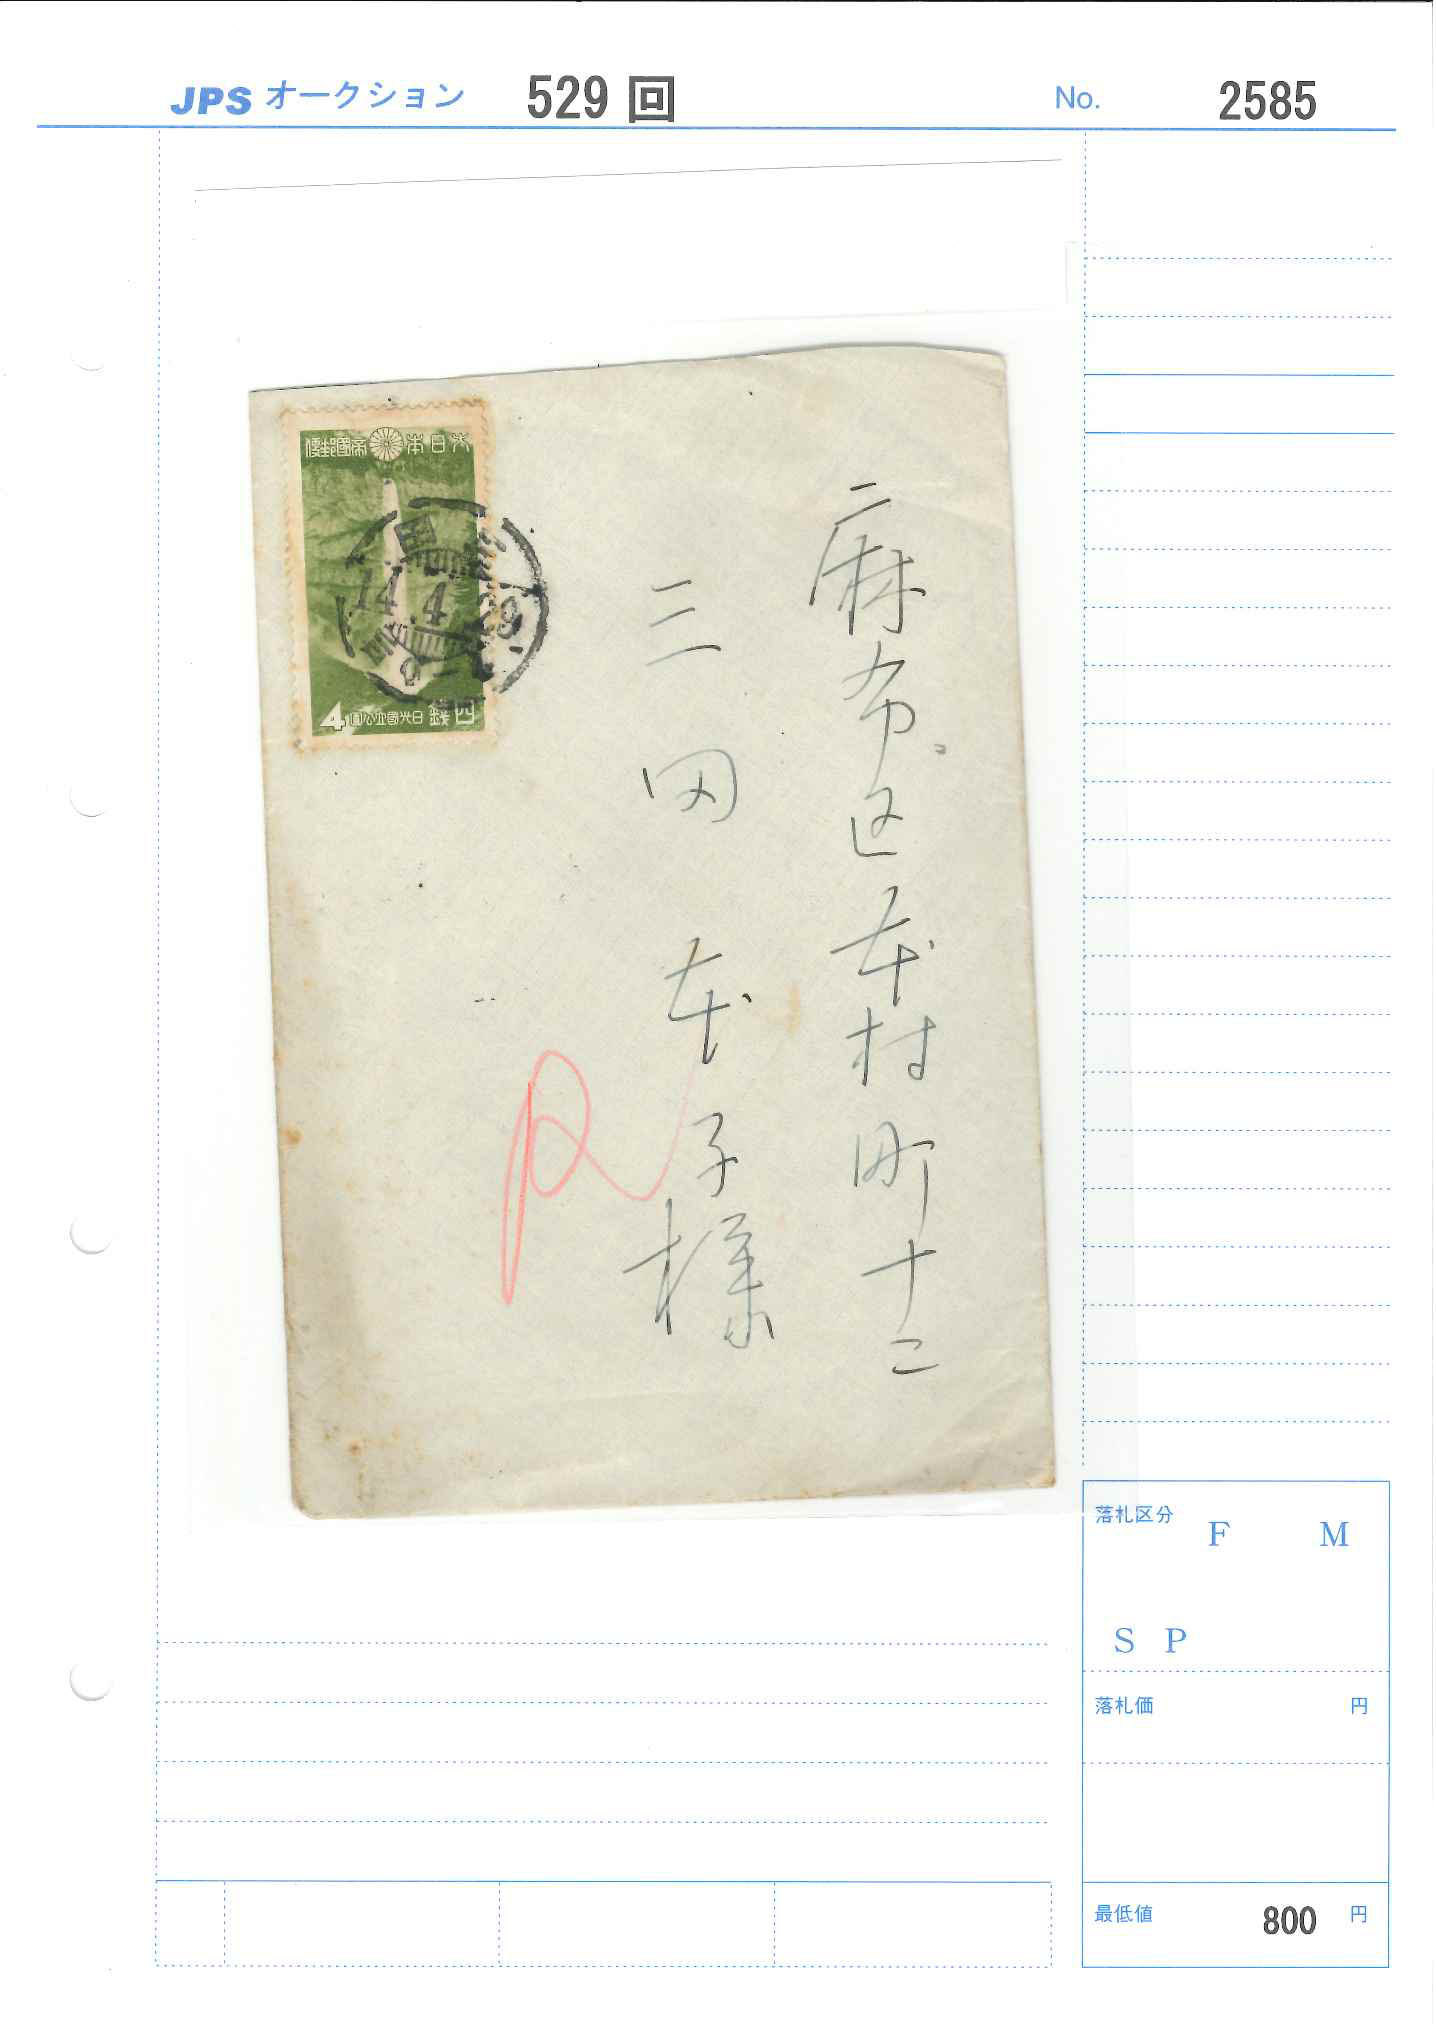 JPS オークション 529 回 No. 2585
大日本帝國郵便
14.4.29
4 日光國立公園 四錢
麻布区本村町十二
三田 本子様
落札区分 F M
S P
落札価 円
最低値 800 円